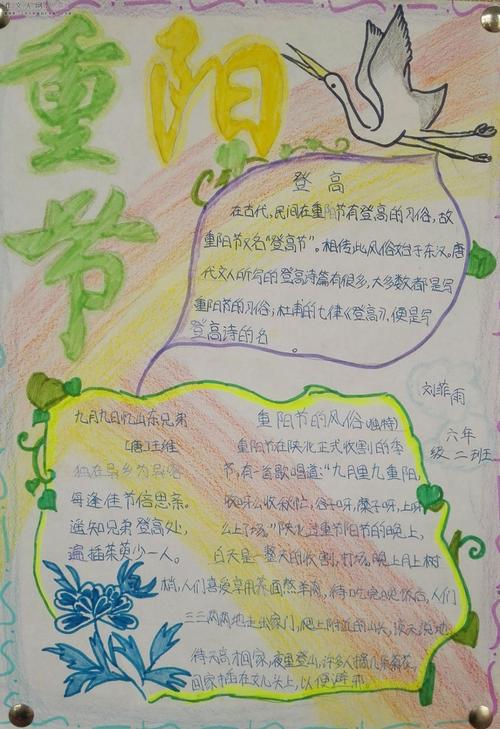 重阳
节
登高
在古代,民间在重阳节有登高的习俗,故
重阳节又名“登高节”。相传此风俗始于东汉。唐
代文人所写的登高诗篇有很多,大多数都是写
重阳节的习俗;杜甫的七律《登高》,便是写
登高诗的名
。
刘菲雨
六年
级二班
九月九日忆山东兄弟
[唐]王维
独在异乡为异客
每逢佳节信思亲。
遥知兄弟登高处,
遍插茱萸少一人。
重阳节的风俗(独特)
重阳节在陕北正式收割的季
节,有一首歌唱道:“九月里九重阳,
收呀么收秋忙,谷子呀,糜子呀,上呀
么上了场。”陕北过重节阳节的晚上,
白天是一整天的收割,打场。晚上月上树
梢,人们喜爱享用荞面熬羊肉,待吃完晚饭后,人们
三三两两地走出家门,爬上附近的山头,
待天高 回家,夜里登山,许多人摘几朵菊花,
回家 插在女儿头上,以便避邪